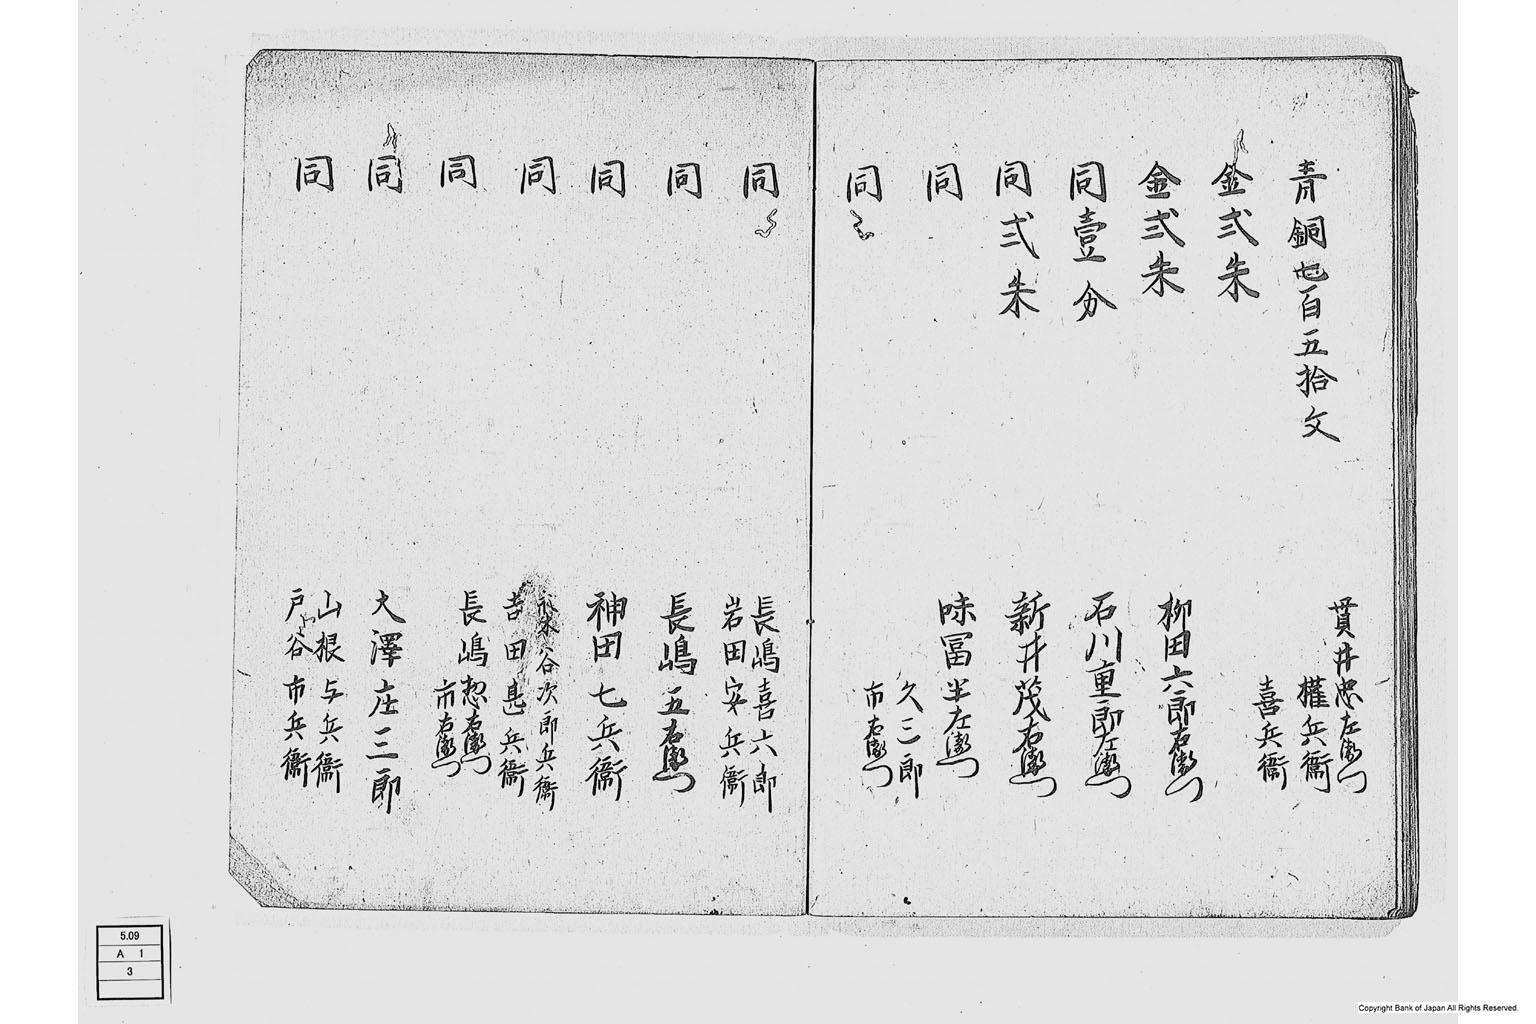 青銅七百五拾文
貫井忠左衛門
権兵衛
喜兵衛
金弐朱
金弐朱
柳田六郎右衛門
同壹分
石川重郎左衛門
同弐朱
新井茂右衛門
同
味冨半左衛門
同
久三郎
市右衛門
同
長嶋喜六郎
岩田安兵衛
同
長嶋五右衛門
同
神田七兵衛
同
粂谷次郎兵衛
吉田甚兵衛
同
長嶋惣右衛門
市右衛門
同
大澤庄三郎
同
山根与兵衛
戸谷市兵衛
5.09
A 1
3
Copyright Bank of Japan All Rights Reserved.